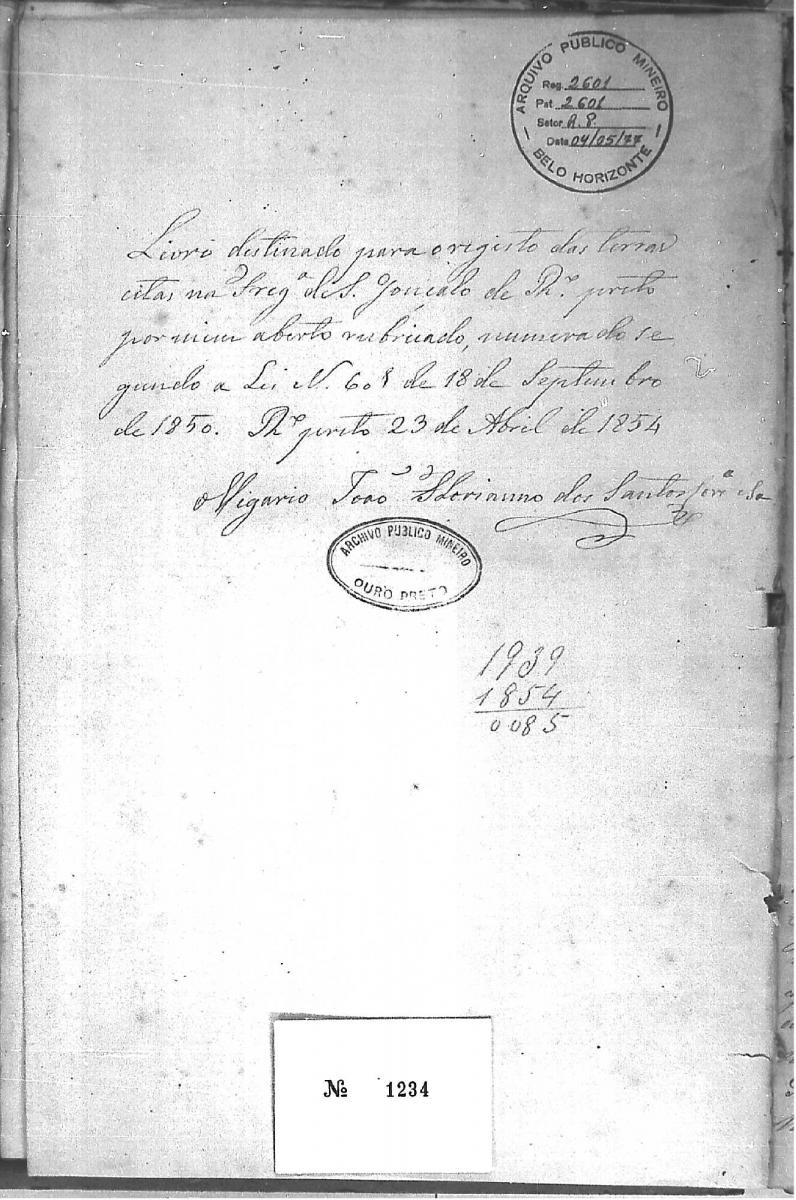 ARQUIVO PUBLICO MINEIRO
Reg. 2601
Pat. 2601
Setor A. P.
Data 04/05/77
BELO HORIZONTE
Livro destinado para o registo das terras
citas na Freg.ª de S. Gonçalo do Rio preto
por mim aberto rubricado, numerado se
gundo a Lei N. 601 de 18 de Septembro
de 1850. preto 23 de Abril de 1854
O Vigario João Florianno dos Santos
ARCHIVO PUBLICO MINEIRO
OURO PRETO
1939
1854
0085
№ 1234